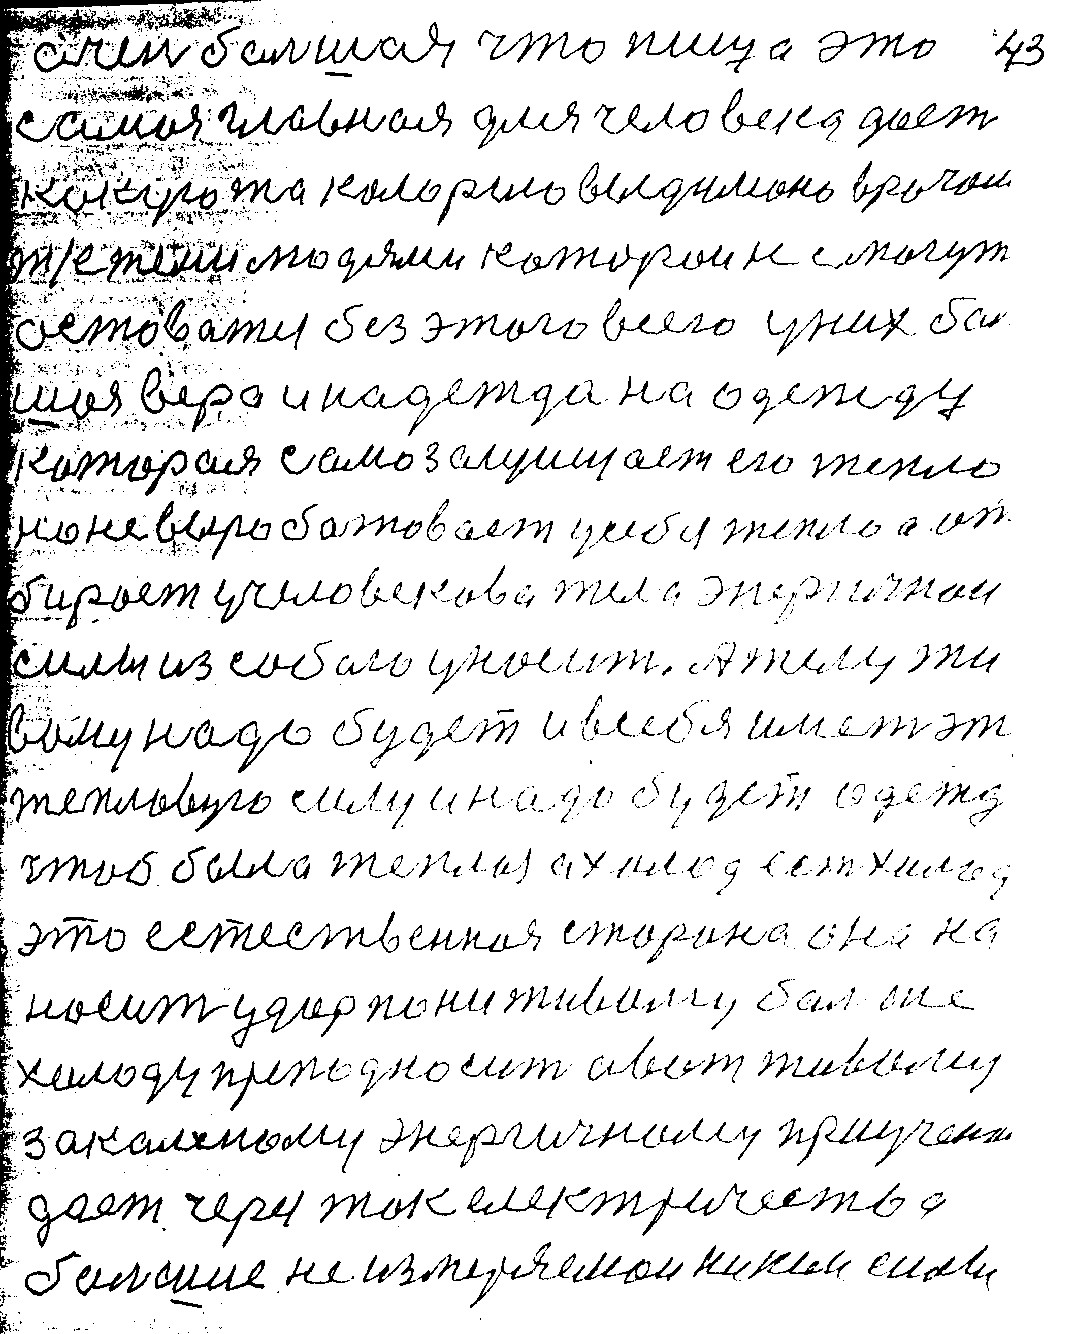 очен болшая что пища это 43
самоя главная для человека дает
какуюто колорию выдумоно врачом
теми людями которои не могут
оставатця без этого всего у них бол
шоя вера и надежда на одежду
которая само защищает его тепло
но не выробатовает усебя тепло а от
бироетучеловекова тела энергичнои
силы из собою уносит. А телу жи
вому надо будет и в себя имет эт
тепловую силу и надо будет одежд
чтоб была теплоя а холод ест холод
это естественноя сторона она на
носит удар по нижывому болше
холоду преподносит а вот живому
закаленому энергичному приучено
дает через ток електричества
болшие не измеряемои ником силы